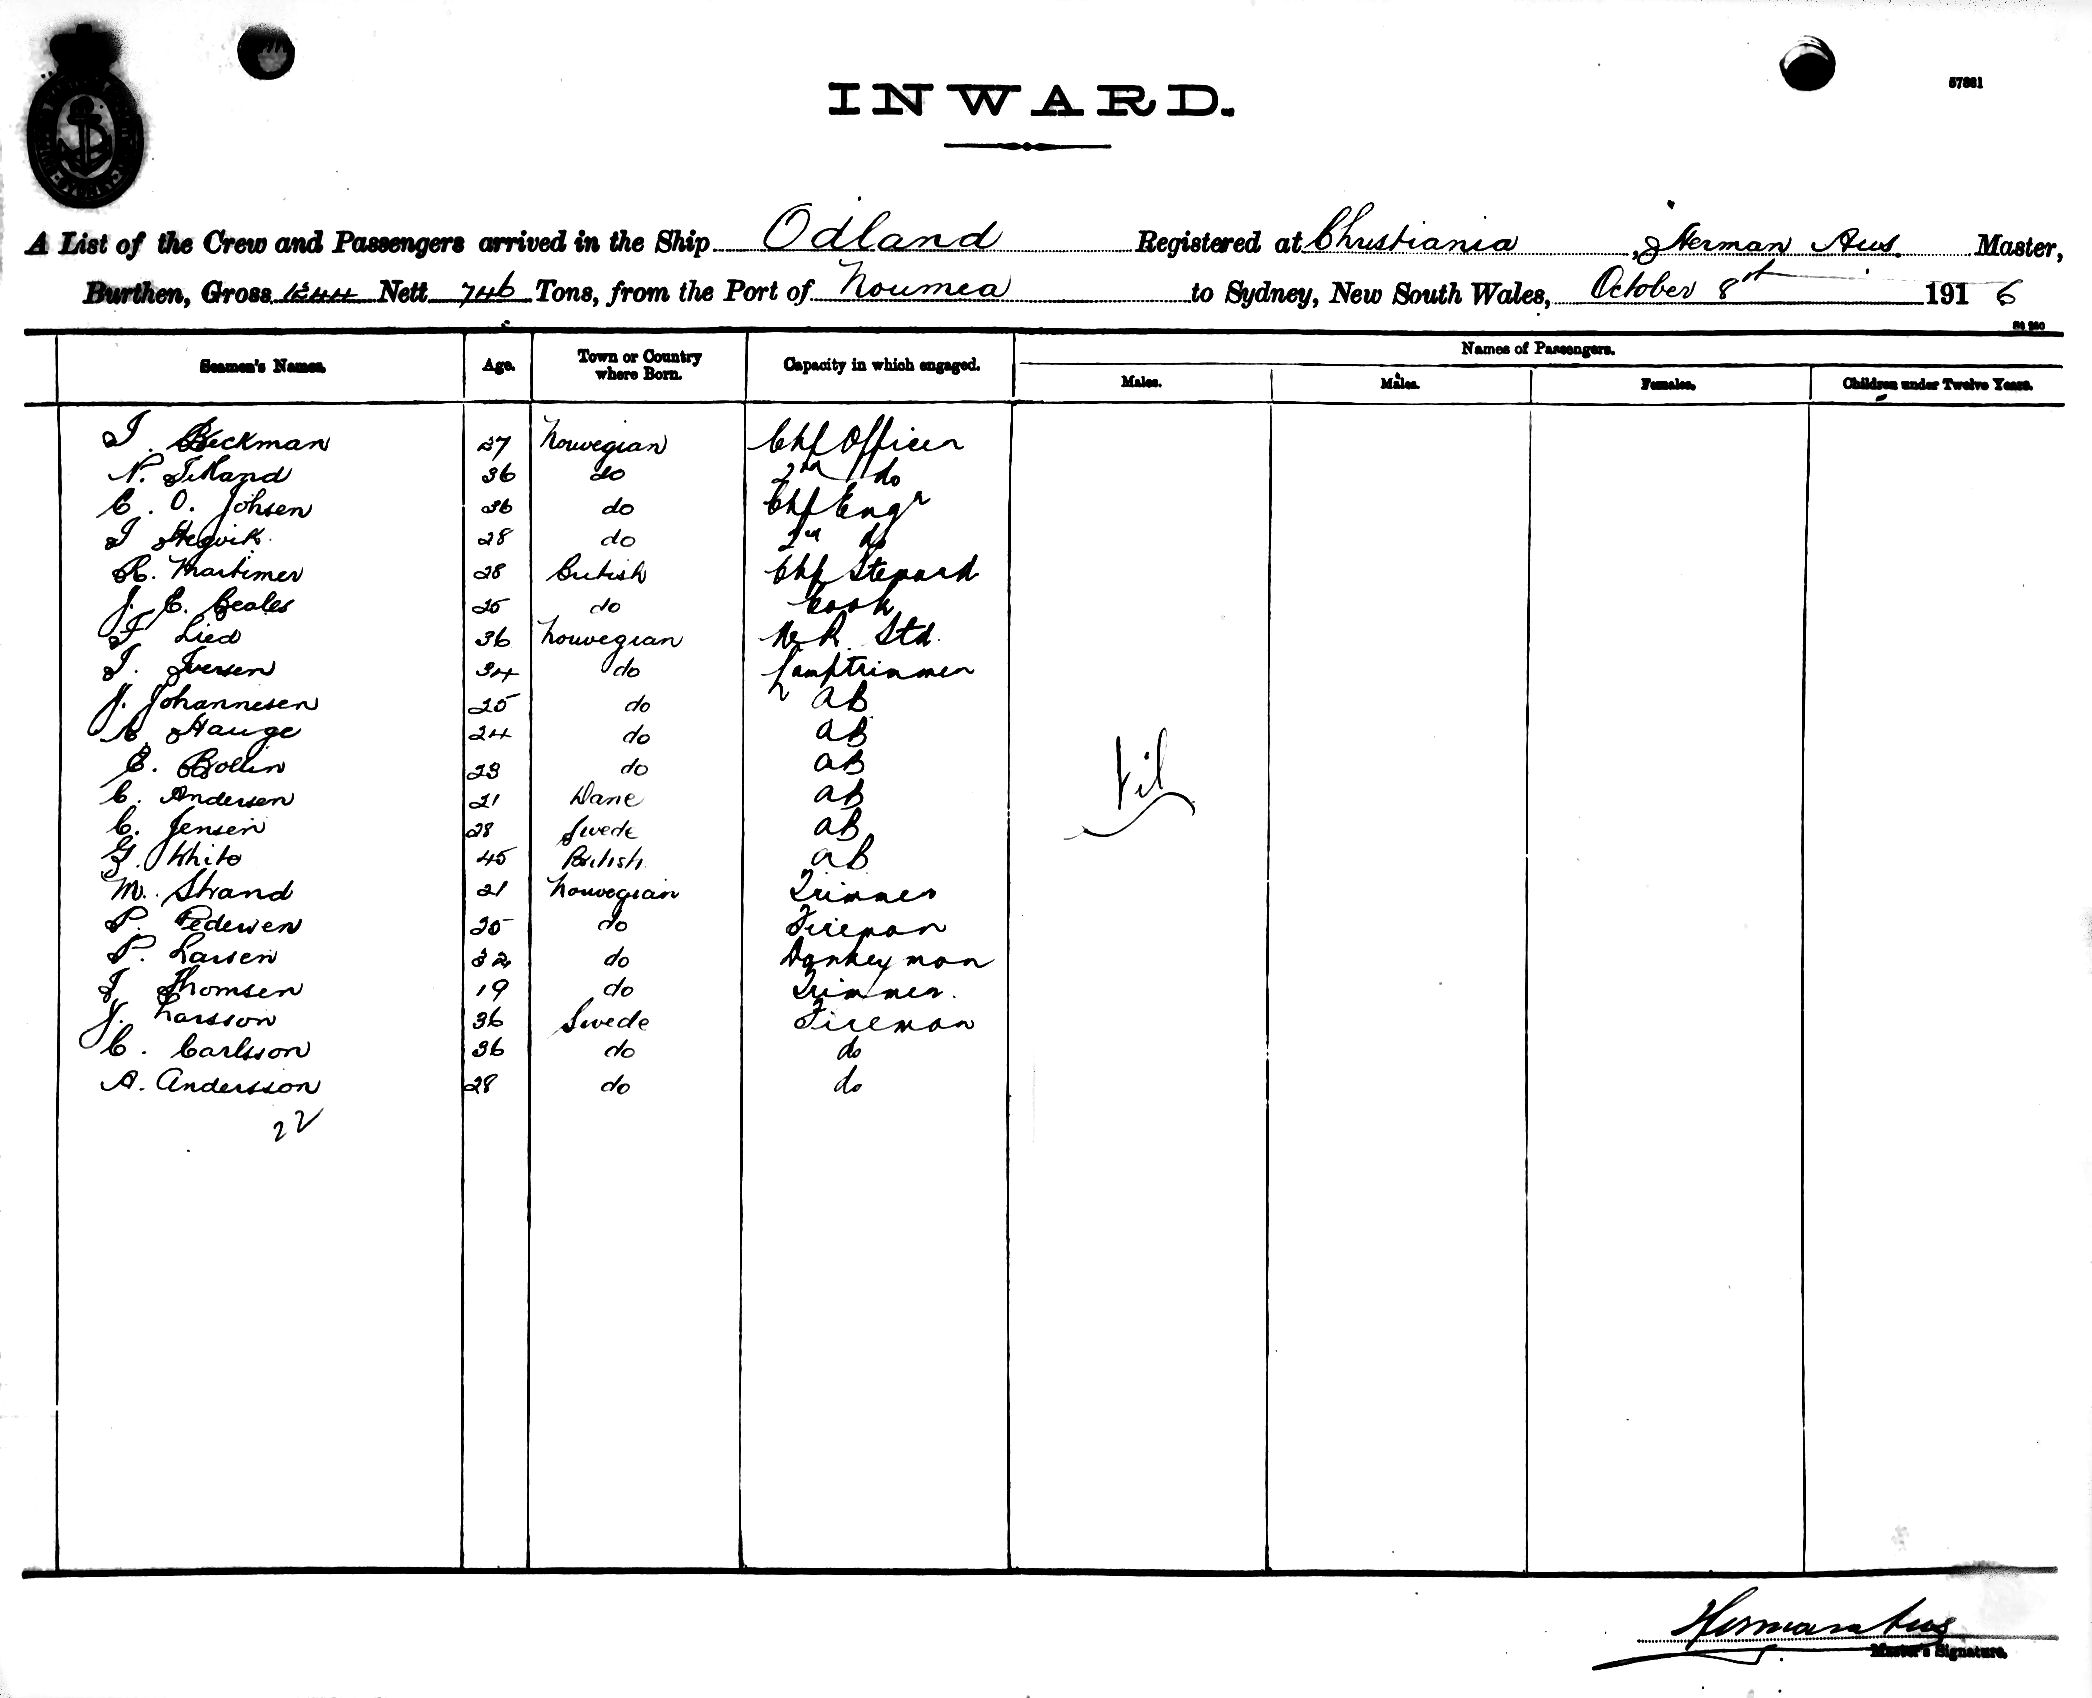 INWARD.
57881
A List of the Crew and Passengers arrived in the Ship Odland Registered at Christiania, Herman Aus. Master,
Burthen, Gross 1244 Nett 746 Tons, from the Port of Noumea to Sydney, New South Wales, October 8th 1916
Seamen's Names. Age. Town or Country where Born. Capacity in which engaged. Names of Passengers.
Males. Males. Females. Children under Twelve Years.
Beckman 27 Norwegian Chf Officer
N. 36 do 2nd do
C. O. Johsen 36 do Chf Engr
Hegvik 28 do 2nd do
R. Mortimer 28 British Chf Steward
J. C. Beales 25 do Cook
Lied 36 Norwegian M R Std.
Iversen 34 do Lamptrimmer
J. Johannesen 25 do AB
Hauge 24 do AB
E. Bollin 23 do AB
C. Andersen 21 Dane AB
C. Jensen 28 Swede AB
G. White 45 British AB
M. Strand 21 Norwegian Trimmer
P. Pedersen 25 do Fireman
P. Larsen 32 do Donkeyman
Thomsen 19 do Trimmer.
J. Larsson 36 Swede Fireman
C. Carlsson 36 do do
A. Andersson 28 do do
22
Nil
Herman Aus
Master's Signature.